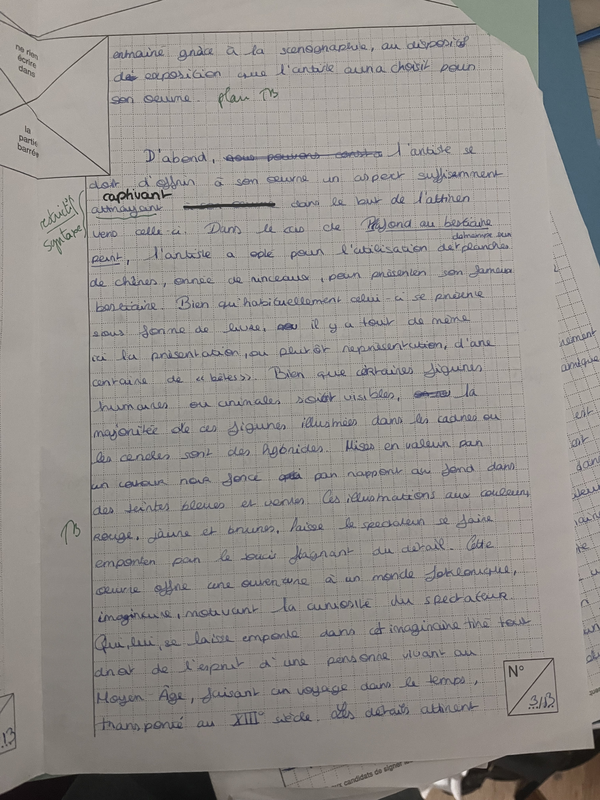 ne rien
écrire
dans
la
partie
barrée
entrainé grâce à la scénographie, au dispositif
d'exposition que l'artiste aura choisit pour
son œuvre. plan TB
D'abord, l'artiste se
doit d'offrir à son œuvre un aspect suffisemment
captivant
attrayant dans le but de l'attirer
vers celle-ci. Dans le cas de Plafond au bestiaire
demeure sur
peint, l'artiste a opté pour l'utilisation de planches
de chênes, ornée de rinceaux, pour présenter son fameux
bestiaire. Bien qu'habituellement celui-ci se présente
sous forme de livre, il y a tout de même
ici la présentation, ou peutôt représentation, d'une
centaine de "bêtes". Bien que certaines figures
humaines ou animales soit visibles, la
majoritée de ces figures illustrées dans les cadres ou
les cercles sont des hybrides. Mises en valeur par
un contour noir foncé par rapport au fond dans
des teintes bleues et vertes. Ces illustrations aux couleurs
TB
rouge, jaune et brunes, laisse le spectateur se faire
emporter par le soucis flagrant du détail. Cette
œuvre offre une ouverture à un monde
imagineuse, motivant la curiosité du spectateur
Qui, lui, se laisse emporté dans cet imaginaire tiré tout
droit de l'esprit d'une personne vivant au
Moyen Âge, faisant un voyage dans le temps,
transporté au XIII° siècle. Les détails attirent
N°
3/13